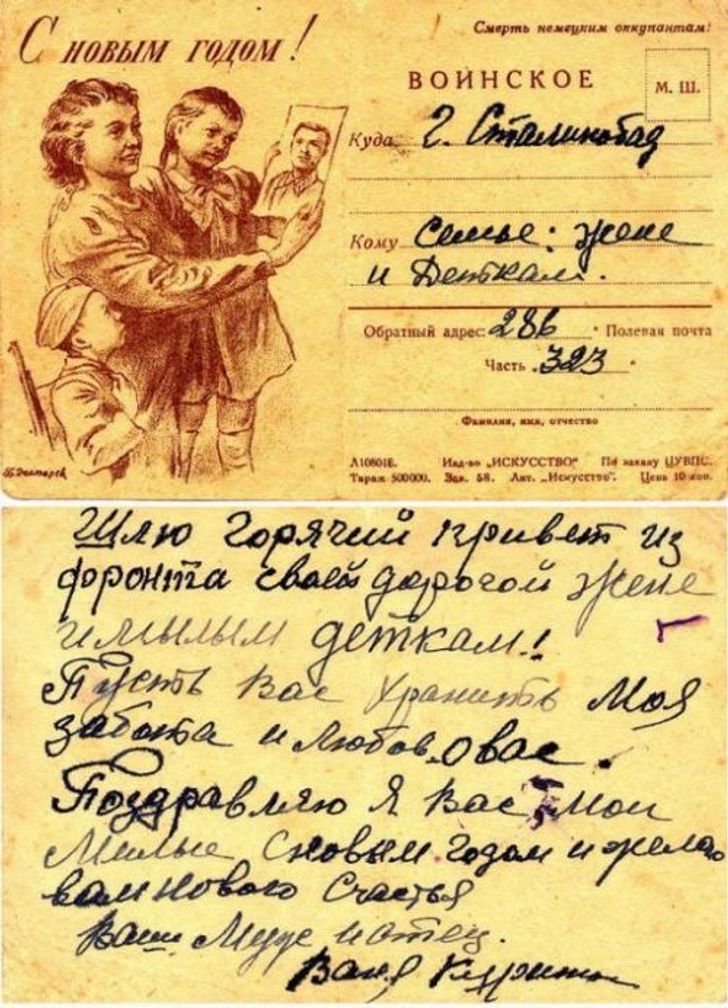 С НОВЫМ ГОДОМ!
Смерть немецким оккупантам!
ВОИНСКОЕ
М. Ш.
Куда г. Сталинобад
Кому Семье: жене
и Деткам.
Обратный адрес: 286 Полевая почта
Часть 323
Фамилия, имя, отчество
А108018. Изд-во „ИСКУССТВО“ По заказу ЦУВПС.
Тираж 500000. Зак. 58. Лит. „Искусство“. Цена 10 коп.
Шлю горячий привет из
фронта своей дорогой жене
и милым деткам!
Пусть Вас хранить Моя
забота и любов о вас.
Поздравляю Я Вас Мои
Милые с новым годом и желаю
вам нового счастья
Ваш Муж и отец.
Ваня